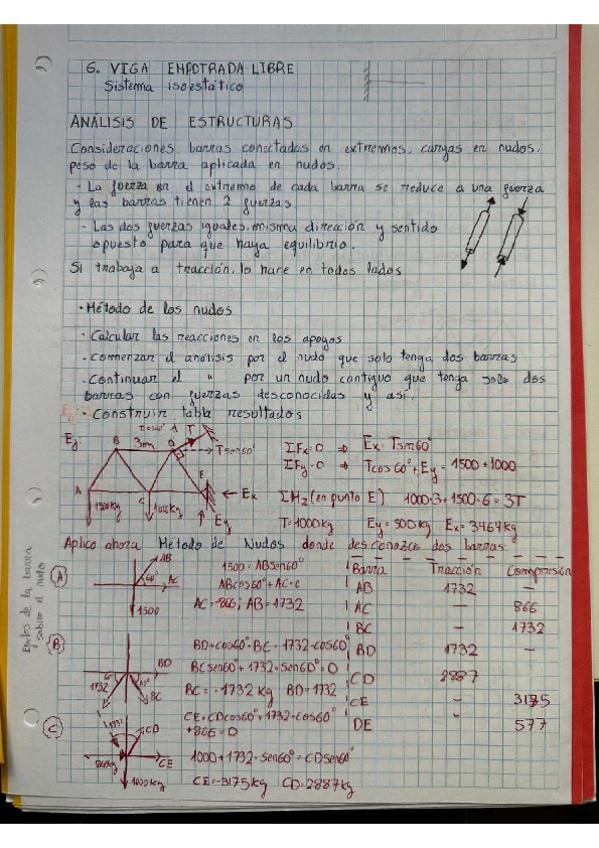 6. VIGA EMPOTRADA-LIBRE
Sistema isoestático
ANÁLISIS DE ESTRUCTURAS
Consideraciones: barras conectadas en extremos, cargas en nudos,
peso de la barra aplicada en nudos.
- La fuerza en el extremo de cada barra se reduce a una fuerza
y las barras tienen 2 fuerzas
- Las dos fuerzas iguales, misma dirección y sentido
opuesto para que haya equilibrio.
Si trabaja a tracción, lo hace en todos lados
· Método de los nudos
- Calcular las reacciones en los apoyos
- Comenzar el análisis por el nudo que solo tenga dos barras
- Continuar el " por un nudo contiguo que tenga solo dos
barras con fuerzas desconocidas y así.
- Construir tabla resultados
Ej:
B 3m D T
Tsen60°
A C E
1500kg 1000kg
Ex
Ey
ΣFx=0 ⇒ Ex=Tsen60°
ΣFy=0 ⇒ Tcos60°+Ey=1500+1000
ΣMz (en punto E) 1000·3+1500·6=3T
T=1000kg Ey=500kg Ex=3464kg
Aplico ahora Método de Nudos donde desconozca dos barras
Efectos de la barra
sobre el nudo
A
AB
60° AC
1500
1500=ABsen60°
ABcos60°+AC=0
AC=-866; AB=1732
B
BD
1732 BC
BD+cos60°·BC=1732·cos60°
BCsen60°+1732·sen60°=0
BC=-1732 kg BD=1732
C
1732 CD
866kg CE
1000kg
CE+CDcos60°+1732·cos60°
+866=0
1000+1732·sen60°=CDsen60°
CE=-3175kg CD=2887kg
Barra Tracción Compresión
AB 1732 –
AC – 866
BC – 1732
BD 1732 –
CD 2887
CE – 3175
DE – 577